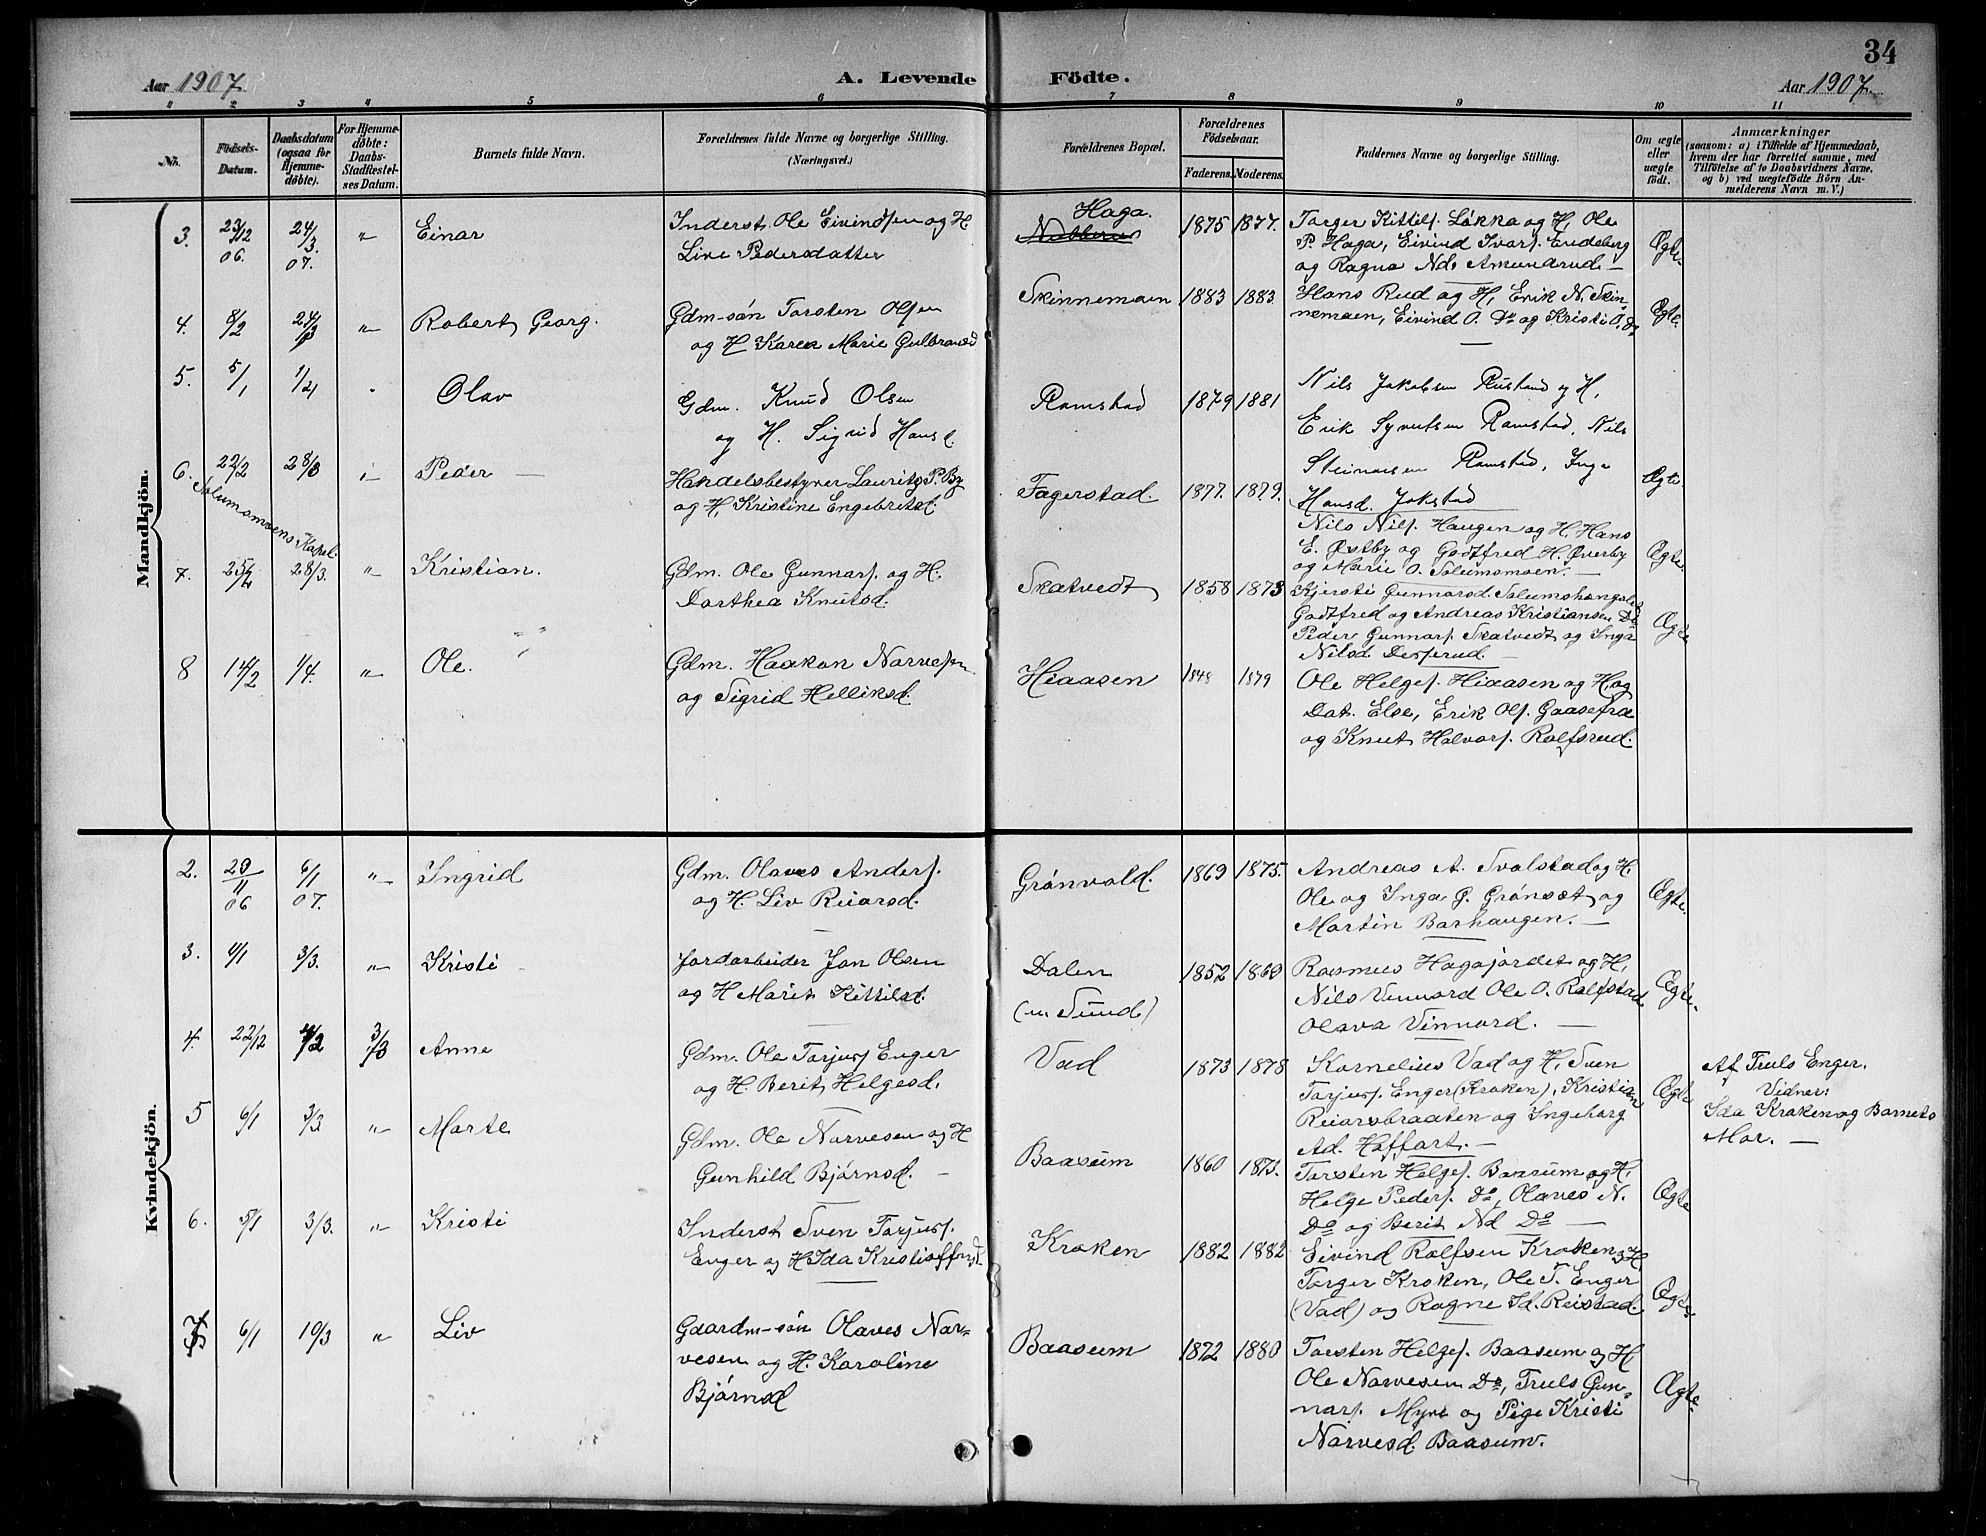 34
Aar 1907.
A. Levende Födte.
Aar 1907.
1 2 3 4 5 6 7 8 9 10 11
No.
Födsels-
Datum.
Daabsdatum
(ogsaa for
Hjemme-
döbte).
For Hjemme-
döbte:
Daabs-
Stadfæstel-
ses Datum.
Barnets fulde Navn.
Forældrenes fulde Navne og borgerlige Stilling.
(Næringsvei.)
Forældrenes Bopæl.
Forældrenes
Födselsaar.
Faderens. Moderens.
Faddernes Navne og borgerlige Stilling.
Om ægte
eller
uægte
födt.
Anmærkninger
(saasom: a) i Tilfælde af Hjemmedaab,
hvem der har forrettet samme, med
Tilföielse af to Daabsvidners Navne,
og b) ved uægtefödte Börn An-
melderens Navn m. V.)
Mandkjön.
3. 23/12 06. 24/3 07. " Einar
Inderst Ole Eivindsen og H.
Live Pedersdatter
Haga.
1875 1877.
Torger Kittils. Løkka og H, Ole
P. Haga, Eivind Ivars. Endsberg
og Ragna Nd. Amundrud. —
Ægte.
4. 8/2 24/3 " Robert Georg.
Gdm-søn Torsten Olsen
og H Karen Marie Gulbrandsd
Skinnemoen 1883 1883
Hans Rud og H, Erik N. Skin-
nemoen, Eivind O. Do og Kristi O. Do
Ægte.
5. 5/1 1/4 " Olav
Gdm. Knud Olsen
og H. Sigrid Hansd.
Ramstad 1879 1881
Nils Jakobsen Rustand og H,
Erik Syvertsen Ramstad, Nils
Steinarsen Ramstad, Inga
Hansd. Jokstad
Ægte
6. 22/2 28/3 " Peder —
Solumsmoens Kapel.
Handelsbestyrer Lauritz P. By
og H, Kristine Engebretsd.
Fagerstad. 1877. 1879.
Nils Nils. Haugen og H, Hans
E. Østby og Godtfred H. Øverby
og Marie O. Solumsmoen. —
Ægte.
7. 25/2 28/3. " Kristian.
Gdm. Ole Gunnars. og H.
Dorthea Knutsd.
Skatvedt 1858 1873
Kjersti Gunnarsd. Solumshaugen
Godtfred og Andreas Kristiansen Do
Peder Gunnars. Skatvedt og Inga
Nilsd. Desserud. —
Ægte
8 14/2 1/4. " Ole.
Gdm. Haakon Narvesen
og Sigrid Helliksd.
Hiaasen 1848 1879
Ole Helges. Hiaasen og H, og
Dat. Else, Erik Ols. Gaasefra
og Knut Halvors. Rolfsrud.
Kvindekjön.
2. 29/11 06 6/1 07. " Ingrid
Gdm. Olaves Anders.
og H. Liv Reiarsd.
Grønvold. 1869 1875.
Andreas A. Svalstad og H.
Ole og Inga G. Grønset og
Martin Barhaugen. —
Ægte.
3. 4/1 3/3. " Kristi
Jordarbeider Jon Olsen
og H Marit Kittilsd.
Dalen
(u. Sund) 1852 1869
Rasmus Hagajordet og H,
Nils Vennord Ole O. Rolfstad
Olava Vinnord. —
Ægte.
4. 22/12 4/2 3/3 Anne
Gdm. Ole Torjus. Enger
og H. Berit Helgesd.
Vad 1873 1878
Kornelius Vad og H, Sven
Torjus. Enger (Kroken), Kristian
Reiarsbraaten og Ingeborg
Ad. Haffart. —
Ægte
Af Truls Enger.
Vidner:
Ida Kroken og Barnets
Mor. —
5 6/1 3/3 " Marte
Gdm. Ole Narvesen og H
Gunhild Bjørnsd. —
Baasum 1860 1873.
Torsten Helges. Baasum og H,
Helge Peders. Do, Olaves N.
Do og Berit Nd Do —
Ægte
6. 5/1 3/3. " Kristi
Inderst Sven Torjus.
Enger og H. Ida Kristoffersd.
Kroken 1882 1882
Eivind Rolfsen Kroken og H,
Torger Kroken, Ole T. Enger
(Vad) og Ragne Id. Reistad.
Ægte
7 6/1 10/3 " Liv
Gaardm-søn Olaves Nar-
vesen og H. Karoline
Bjørnsd
Baasum 1872 1880
Torsten Helges. Baasum og H
Ole Narvesen Do, Truls Gun-
nars. Myre og Pige Kristi
Narvesd. Baasum.
Ægte.